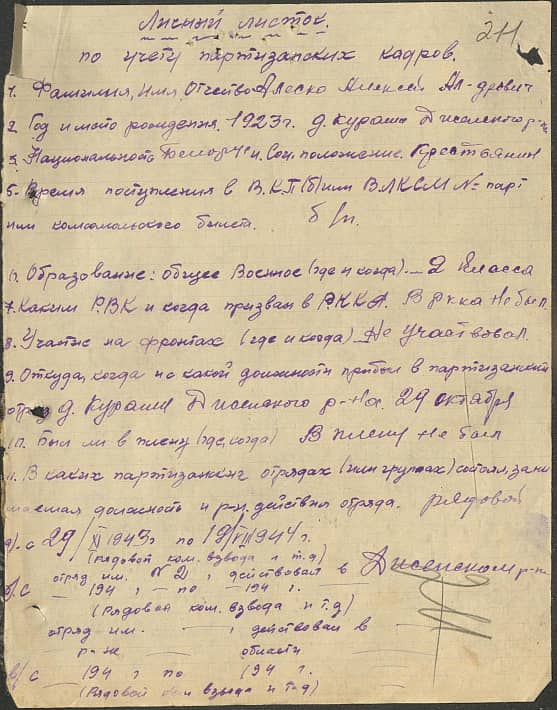 Личный листок.
211
по учету партизанских кадров.
1. Фамилия, имя, Отчество Алеско Алексей Ал-дрович
2. Год и место рождения. 1923г. д. Кураши Дисенского р-на
3. Национальность Белорус и. Соц. положение. Крестьянин
5. Время поступления в В.К.П(б) или ВЛКСМ № парт
или комсомольского билета. б/п.
6. Образование: общее Военное (где и когда). – 2 класса
7. Каким Р.ВК и когда призван в Р.К.К.А. В ркка не был
8. Участие на фронтах (где и когда) Не участвовал.
9. Откуда, когда и с какой должности прибыл в партизанский
отряд д. Кураши Дисенского р-на. 29 октября
10. Был ли в плену (где, когда) В плену не был
11. В каких партизанских отрядах (или группах) состоял, зани
маемая должность и р-н. действия отряда. рядовой
а). с 29/XI 1943г по 19/VII 1944г.
(Рядовой ком. взвода и т.д)
отряд им. №2, действовал в Дисенском р-не
б) с – 194 , – по – 194 г.
(Рядовой ком. взвода и т.д)
отряд им. – , действовал в –
р-не – области –
в) с – 194 г по – 194 г.
(Рядовой ком взвода и т.д)